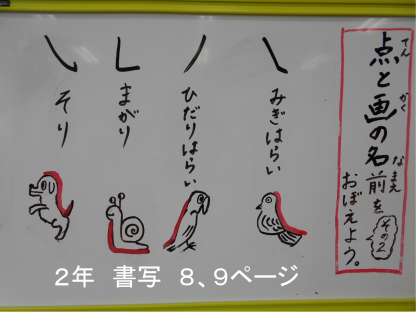 点と画の名前を
てん
かく
なまえ
おぼえよう。
その2
みぎはらい
ひだりはらい
まがり
そり
2年　書写　8、9ページ